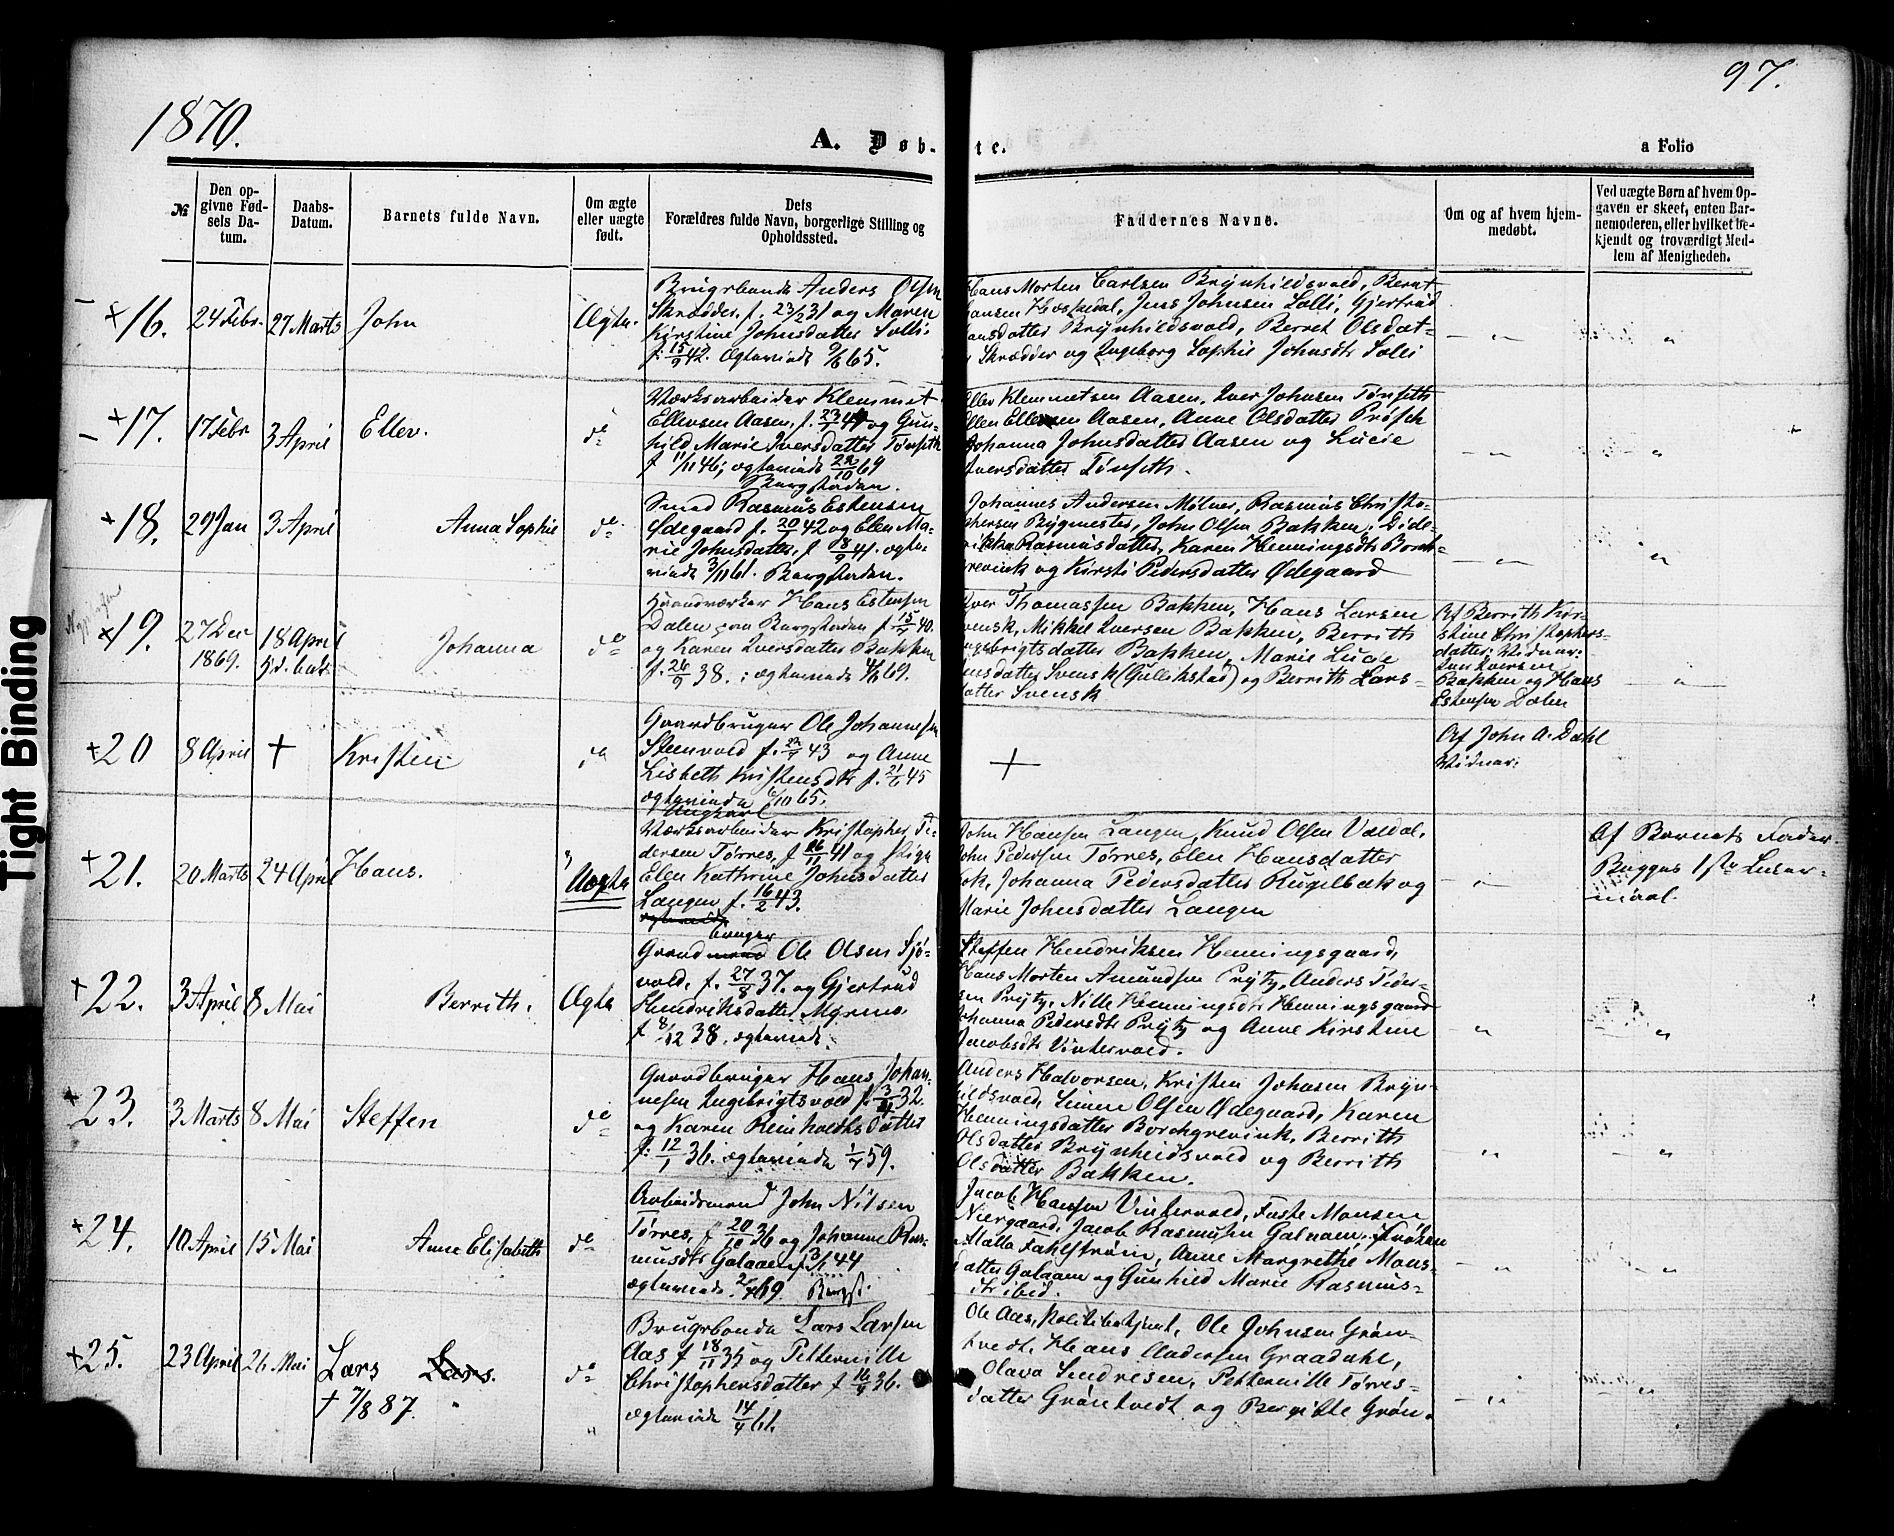 1870.
97.
A. Døb-
te.
a Folio
№
Den op-
givne Fød-
sels Da-
tum.
Daabs-
Datum.
Barnets fulde Navn.
Om ægte
eller uægte
født.
Dets
Forældres fulde Navn, borgerlige Stilling og
Opholdssted.
Faddernes Navne.
Om og af hvem hjem-
medøbt.
Ved uægte Børn af hvem Op-
gaven er skeet, enten Bar-
nemoderen, eller hvilket be-
kjendt og troværdigt Med-
lem af Menigheden.
16. 24 Febr. 27 Marts John Ægte.
Brugsbonde Anders Olsen
Skrædder, f. 23/2 31 og Maren
Kirstine Johnsdatter Solli
f. 15/9 42. Ægteviede 65.
Hans Morten Carlsen Brynhildsvold, Bernt
Hansen Hæskedal, Jens Johnsen Solli, Gjertrud
Hansdatter Brynhildsvold, Berret Olsdat-
Skrædder og Ingeborg Sophie Johnsdtr Solli
17. 17 Febr 3 April Ellev. do
Værksarbeider Klemmet
Ellevsen Aasen, f. 23/1 44 og Gun-
hild Marie Iversdatter Tønseth
f 11/11 46; ægteviede 22/10 69
Bergstaden.
Ellev Klemmetsen Aasen, Iver Johnsen Tønseth
Ellen Ellevsen Aasen, Anne Olsdatter Prøsch
Johanna Johnsdatter Aasen og Lucie
Iversdatter Tønseth.
18. 29 Jan 3 April Anna Sophie do
Smed Rasmus Estensen
Ødegaard f. 20/1 42 og Elen Ma-
rie Johnsdatter, f 18/9 41. ægte-
viede 3/11 61. Bergstaden.
Johannes Andersen Mølner, Rasmus Christo-
phersen Bygmester, John Olsen Bakken, Dide-
rikke Rasmusdatter, Karen Henningsdtr Borch-
grevink og Kirsti Pedersdatter Ødegaard
19. 27 Dec 1869. 18 April Johanna do
Haandværker Hans Estensen
Dalen paa Bergstaden f 15/7 40.
og Karen Iversdatter Bakken
f. 26/9 38.; ægteviede 69.
Iver Thomassen Bakken, Hans Larsen
Svensk, Mikkel Iversen Bakken, Berrith
Ingebrigtsdatter Bakken, Marie Lucie
Jensdatter Svensk (Gullikstad) og Berrith Lars-
datter Svensk
Af Berrith Kir-
stine Christophers-
datter. Vidner:
Jens Iversen
Bakken og Hans
Estensen Dalen
20 8 April + Kristen do
Gaardbruger Ole Johannesen
Steenvold f. 22/7 43 og Anne
Lisbeth Kristensdtr f. 21/6 45
ægteviede 65.
+
Af John A. Dahl
Vidner:
21. 20 Marts 24 April Hans. Uægte
Ungkarl
Værksarbeider Kristopher Pe-
dersen Tørres, f 16/11 41 og Pige
Elen Kathrine Johnsdatter
Langen f. 16/2 43.
John Hansen Langen, Knud Olsen Valdal,
John Pedersen Tørres, Elen Hansdatter
Kok, Johanna Pedersdatter Rugelbæk og
Marie Johnsdatter Langen
Af Barnets Fader.
Begges 1ste Leier-
maal.
22. 3 April 8 Mai Berrith. Ægte
bruger
Gaardmand Ole Olsen Sjø-
vold, f. 27/8 37. og Gjertrud
Hendriksdatter Myrmo
f 8/12 38. ægteviede.
Steffen Hendriksen Henningsgaard,
Hans Morten Amundsen Prytz, Anders Peder-
sen Prytz, Nille Henningsdtr Henningsgaard
Johanna Pedersdtr Prytz og Anne Kirstine
Jacobsdtr Vintervold.
23. 3 Marts 8 Mai Steffen do
Gaardbruger Hans Johan-
nesen Ingebrigtsvold f. 3/4 32.
og Karen Reinholdtsdatter
f. 12/1 36. ægteviede 1/7 59.
Anders Halvorsen, Kristen Johnsen Bryn-
hildsvold, Simen Olsen Ødegaard, Karen
Henningsdatter Borchgrevink, Berrith
Olsdatter Brynhildsvold og Berrith
Olsdatter Bakken.
24. 10 April 15 Mai Anne Elisabeth do
Arbeidsmand John Nilsen
Tørres, f 20/10 36 og Johanne Ras-
musdtr Galaaen f 13/1 44
ægteviede 69. Bergst.
Jacob Hansen Vintervold, Faste Monsen
Niergaard, Jacob Rasmusen Galaaen, Frøken
Malla Fahlstrøm, Anne Margrethe Mons-
datter Galaaen og Gunhild Marie Rasmus-
dtr ibid.
25. 23 April 26 Mai Lars Lars. do
+ 7/8 87.
Brugsbonde Lars Larsen
Aas f 18/11 35 og Petternille
Christophersdatter f 16/4 36.
ægteviede 14/4 61.
Ole Aas, Politibetjent, Ole Johnsen Grøn-
tvedt, Hans Andersen Graadahl,
Olava Sendresen, Petternille Tørres-
datter Grøntvedt og Bergitte Grøn-
Tight Binding